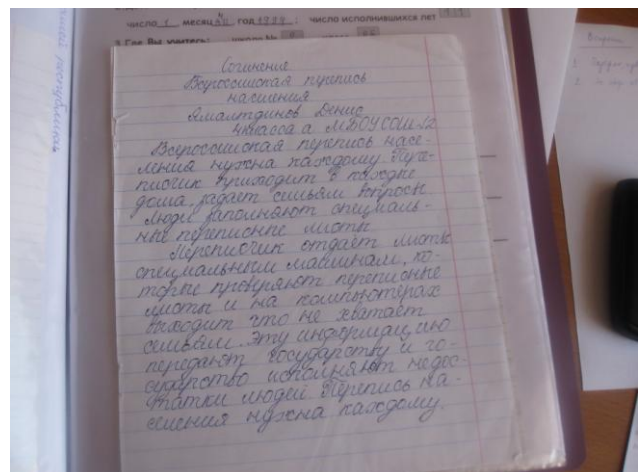 число 1 месяц год 1999 ; число исполнившихся лет
3. Где Вы учитесь:
Сочинение
Всероссийская перепись
населения
Ямалтдинов Денис
4 класса а МБОУ СОШ 12
Всероссийская перепись насе-
ления нужна каждому. Пере-
писчик приходит в каждые
дома, задает семьям вопросы
Люди заполняют специаль-
ные переписные листы.
Переписчик отдаёт листы
специальным машинам, ко-
торые проверяют переписные
листы и на компьютерах
выходит что не хватает
семьям. Эту информацию
передают государству и го-
сударство исполняют недос-
татки людей Перепись на-
селения нужна каждому.